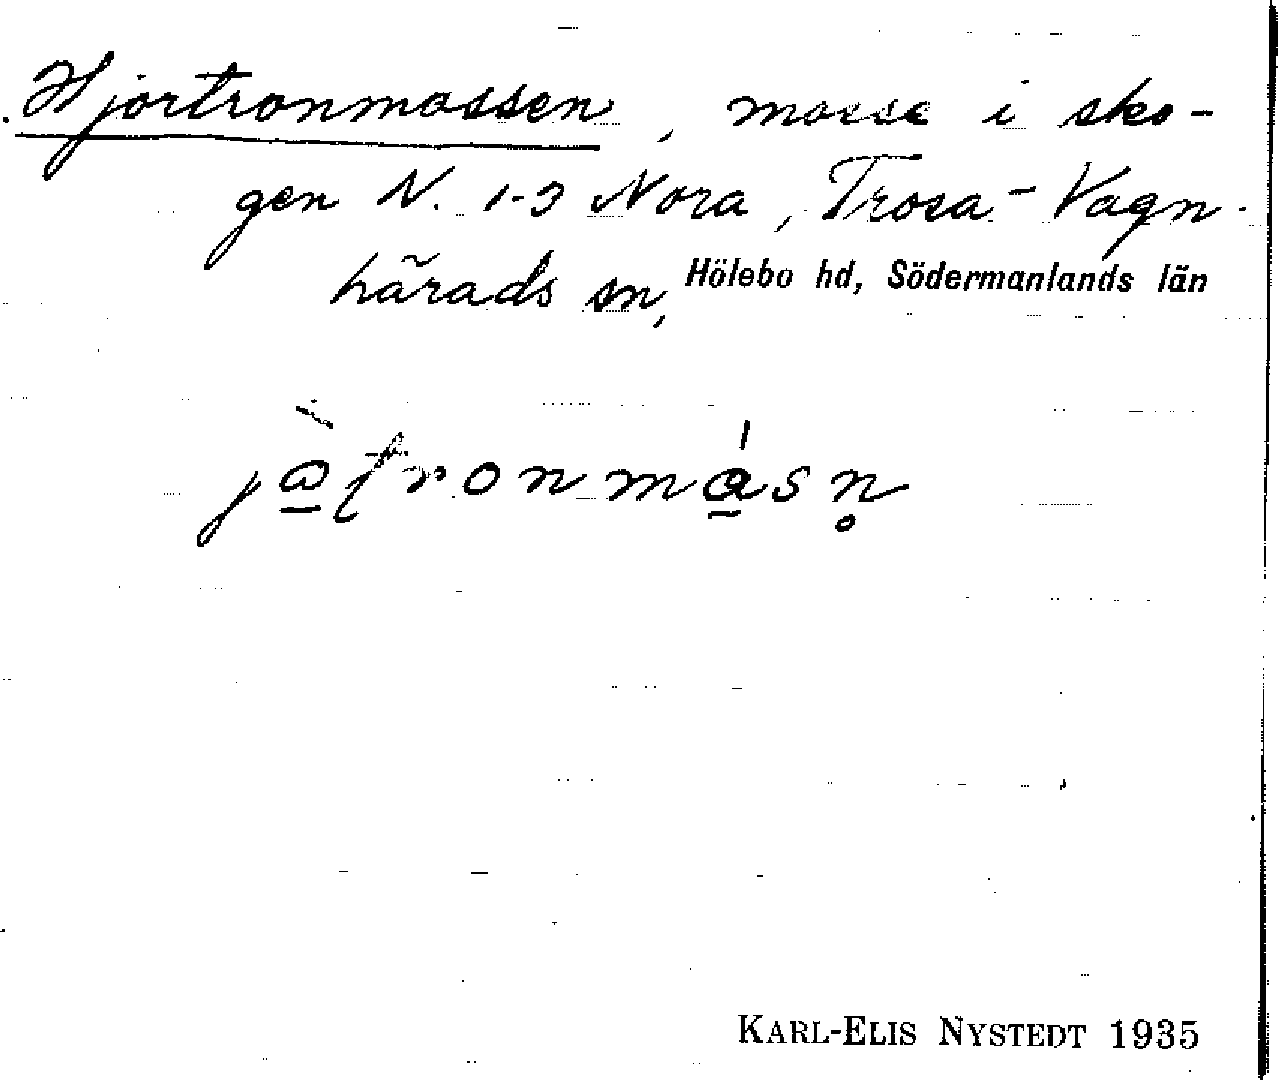 Hjortronmossen, mosse i sko-
gen N. 1-3 Nora, Trosa-Vagn-
härads sn, Hölebo hd, Södermanlands län
KARL-ELIS NYSTEDT 1935